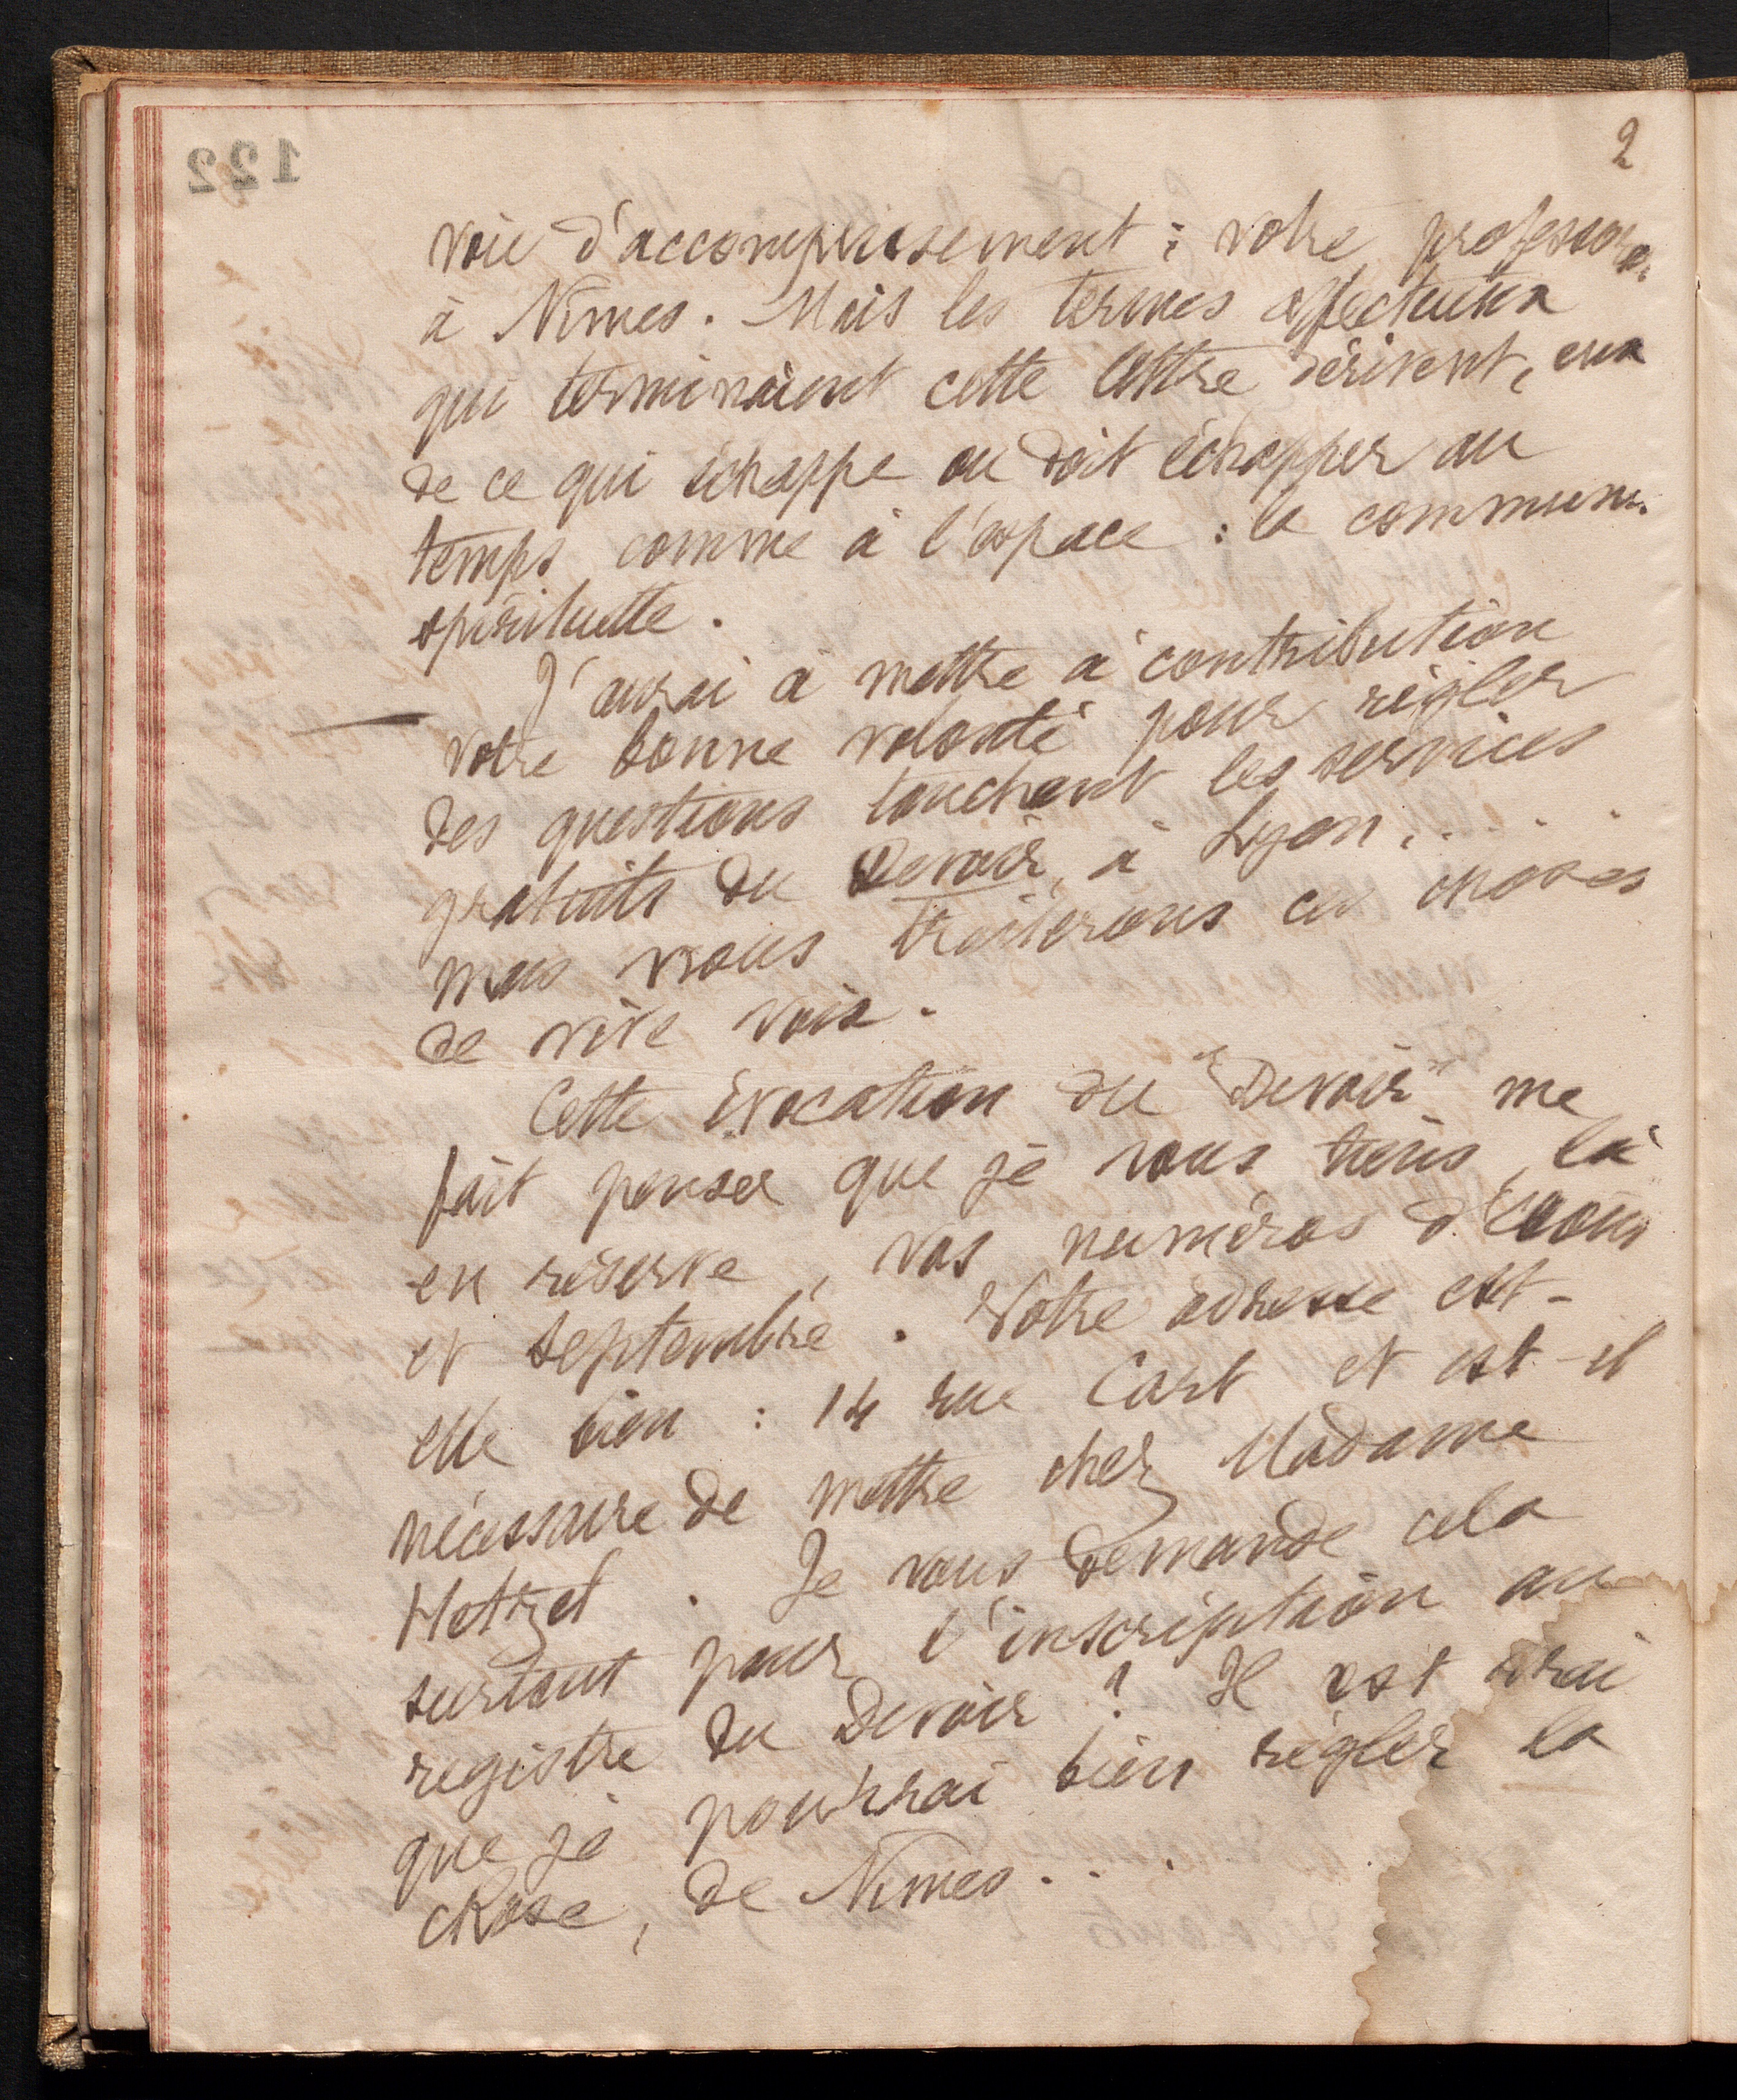 122
2
voie d'accomplissement : votre professora.
à Nimes. Mais les termes affectueux
qui terminaient cette lettre dérivent, eux
de ce qui échappe ou doit échapper au
temps comme à l'espace : la commun.
spirituelle.
J'aurai à mettre à contribution
votre bonne volonté pour régler
des questions touchant les services
gratuits du Devoir, à Lyon.....
mais nous traiterons ces choses
de vive voix.
Cette évocation du "Devoir" me
fait penser que je vous tiens, là
en réserve, vos numéros d'août
et septembre. Votre adresse est-
elle bien : 14 rue Cart et est-il
nécessaire de mettre chez Madame
Hotzel. Je vous demande cela
surtout pour l'inscription au
registre du Devoir ? Il est vrai
que je pourrai bien régler la
chose, de Nimes...